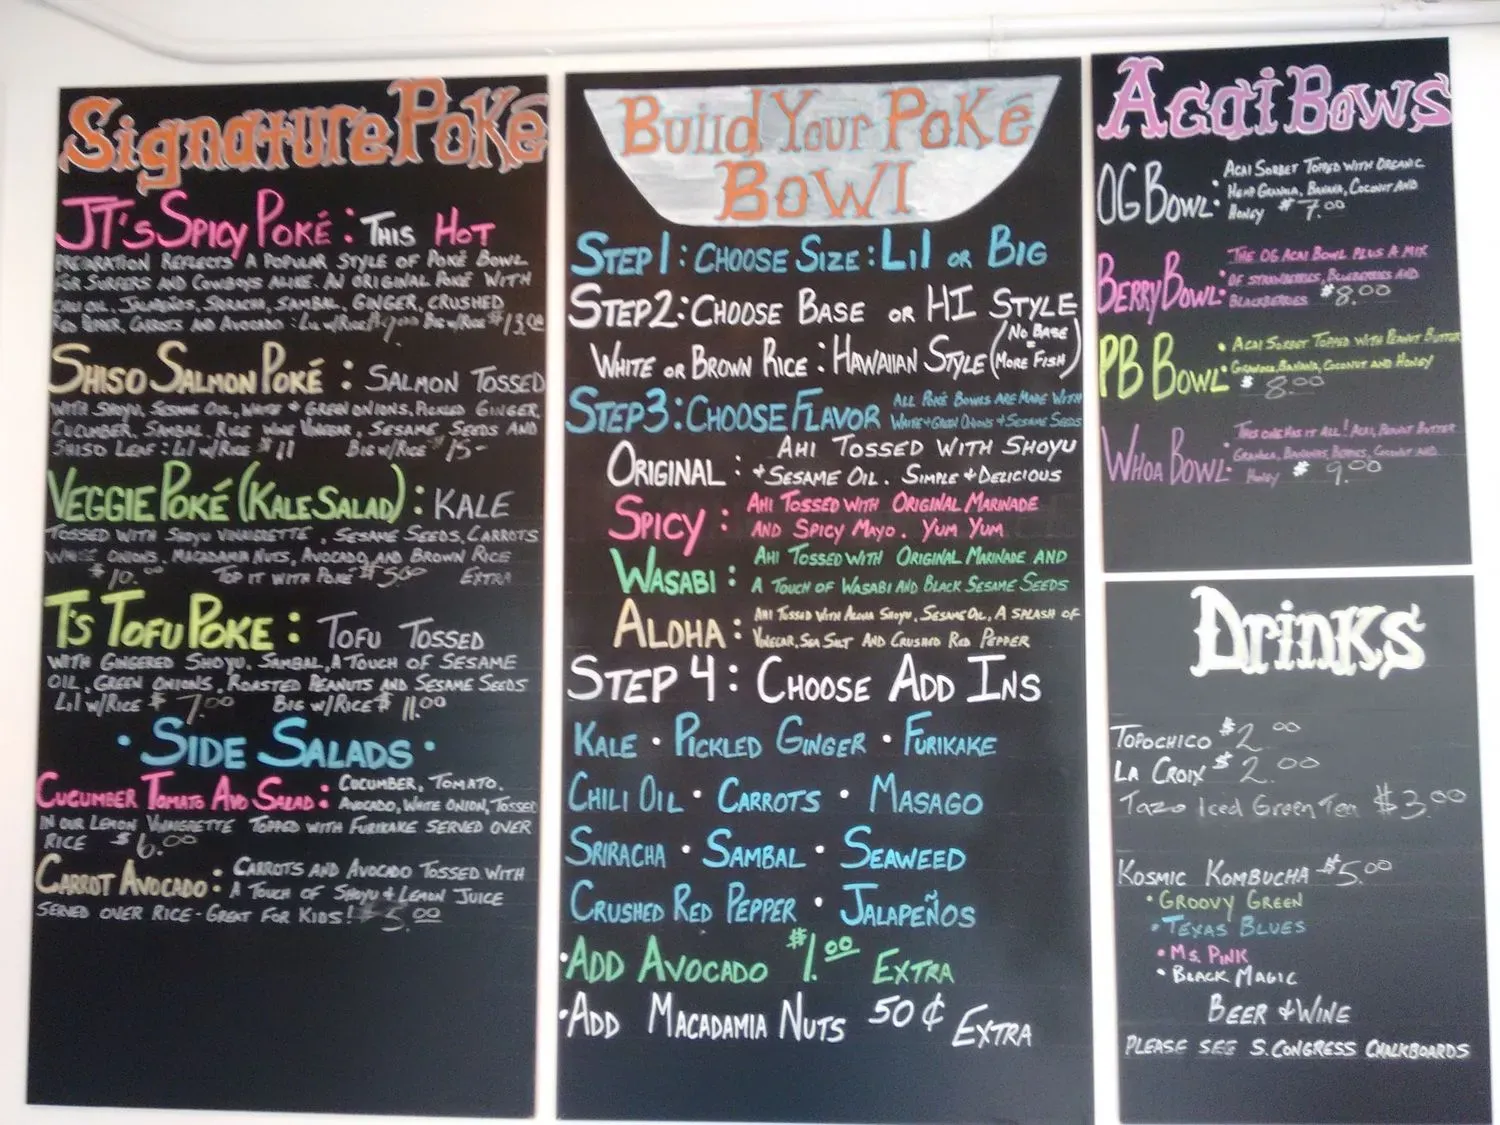 Signature Poké
JT's Spicy Poké: This Hot
Preparation Reflects a Popular Style of Poké Bowl
for Surfers and Cowboys Alike. An Original Poké with
Chili Oil, Jalapeños, Sriracha, Sambal, Ginger, Crushed
Red Pepper, Carrots and Avocado: Lil w/Rice Big w/Rice $13.00
Shiso Salmon Poké: Salmon Tossed
with Shoyu, Sesame Oil, White + Green Onions, Pickled Ginger,
Cucumber, Sambal, Rice Wine Vinegar, Sesame Seeds and
Shiso Leaf: Lil w/Rice $11 Big w/Rice $15-
Veggie Poké (Kale Salad): Kale
Tossed with Shoyu Vinaigrette, Sesame Seeds, Carrots
White Onions, Macadamia Nuts, Avocado, and Brown Rice
$10.00 Top it with Poke $5.00 Extra
T's Tofu Poke: Tofu Tossed
with Gingered Shoyu, Sambal, A Touch of Sesame
Oil, Green Onions, Roasted Peanuts and Sesame Seeds
Lil w/Rice $7.00 Big w/Rice $11.00
• Side Salads •
Cucumber Tomato Avo Salad: Cucumber, Tomato,
Avocado, White Onion, Tossed
in our Lemon Vinaigrette Topped with Furikake Served over
Rice $6.00
Carrot Avocado: Carrots and Avocado Tossed with
a Touch of Shoyu & Lemon Juice
Served over Rice - Great for Kids! $5.00
Build Your Poké
Bowl
Step 1: Choose Size: Lil or Big
Step 2: Choose Base or HI Style
White or Brown Rice: Hawaiian Style (No Base = More Fish)
Step 3: Choose Flavor All Poké Bowls are Made with
White + Green Onions + Sesame Seeds
Original: Ahi Tossed with Shoyu
+ Sesame Oil. Simple + Delicious
Spicy: Ahi Tossed with Original Marinade
and Spicy Mayo. Yum Yum
Wasabi: Ahi Tossed with Original Marinade and
a Touch of Wasabi and Black Sesame Seeds
Aloha: Ahi Tossed with Aloha Shoyu, Sesame Oil, A splash of
Vinegar, Sea Salt and Crushed Red Pepper
Step 4: Choose Add Ins
Kale • Pickled Ginger • Furikake
Chili Oil • Carrots • Masago
Sriracha • Sambal • Seaweed
Crushed Red Pepper • Jalapeños
• Add Avocado $1.00 Extra
• Add Macadamia Nuts 50¢ Extra
Acai Bowls
OG Bowl: Acai Sorbet Topped with Organic
Hemp Granola, Banana, Coconut and
Honey $7.00
Berry Bowl: The OG Acai Bowl plus a mix
of strawberries, Blueberries and
Blackberries $8.00
PB Bowl: • Acai Sorbet Topped with Peanut Butter
Granola, Banana, Coconut and Honey
$8.00
Whoa Bowl: This one has it all! Acai, Peanut Butter
Granola, Bananas, Berries, Coconut and
Honey $9.00
Drinks
Topochico $2.00
La Croix $2.00
Tazo Iced Green Tea $3.00
Kosmic Kombucha $5.00
• Groovy Green
• Texas Blues
• Ms. Pink
• Black Magic
Beer & Wine
Please see S. Congress Chalkboards